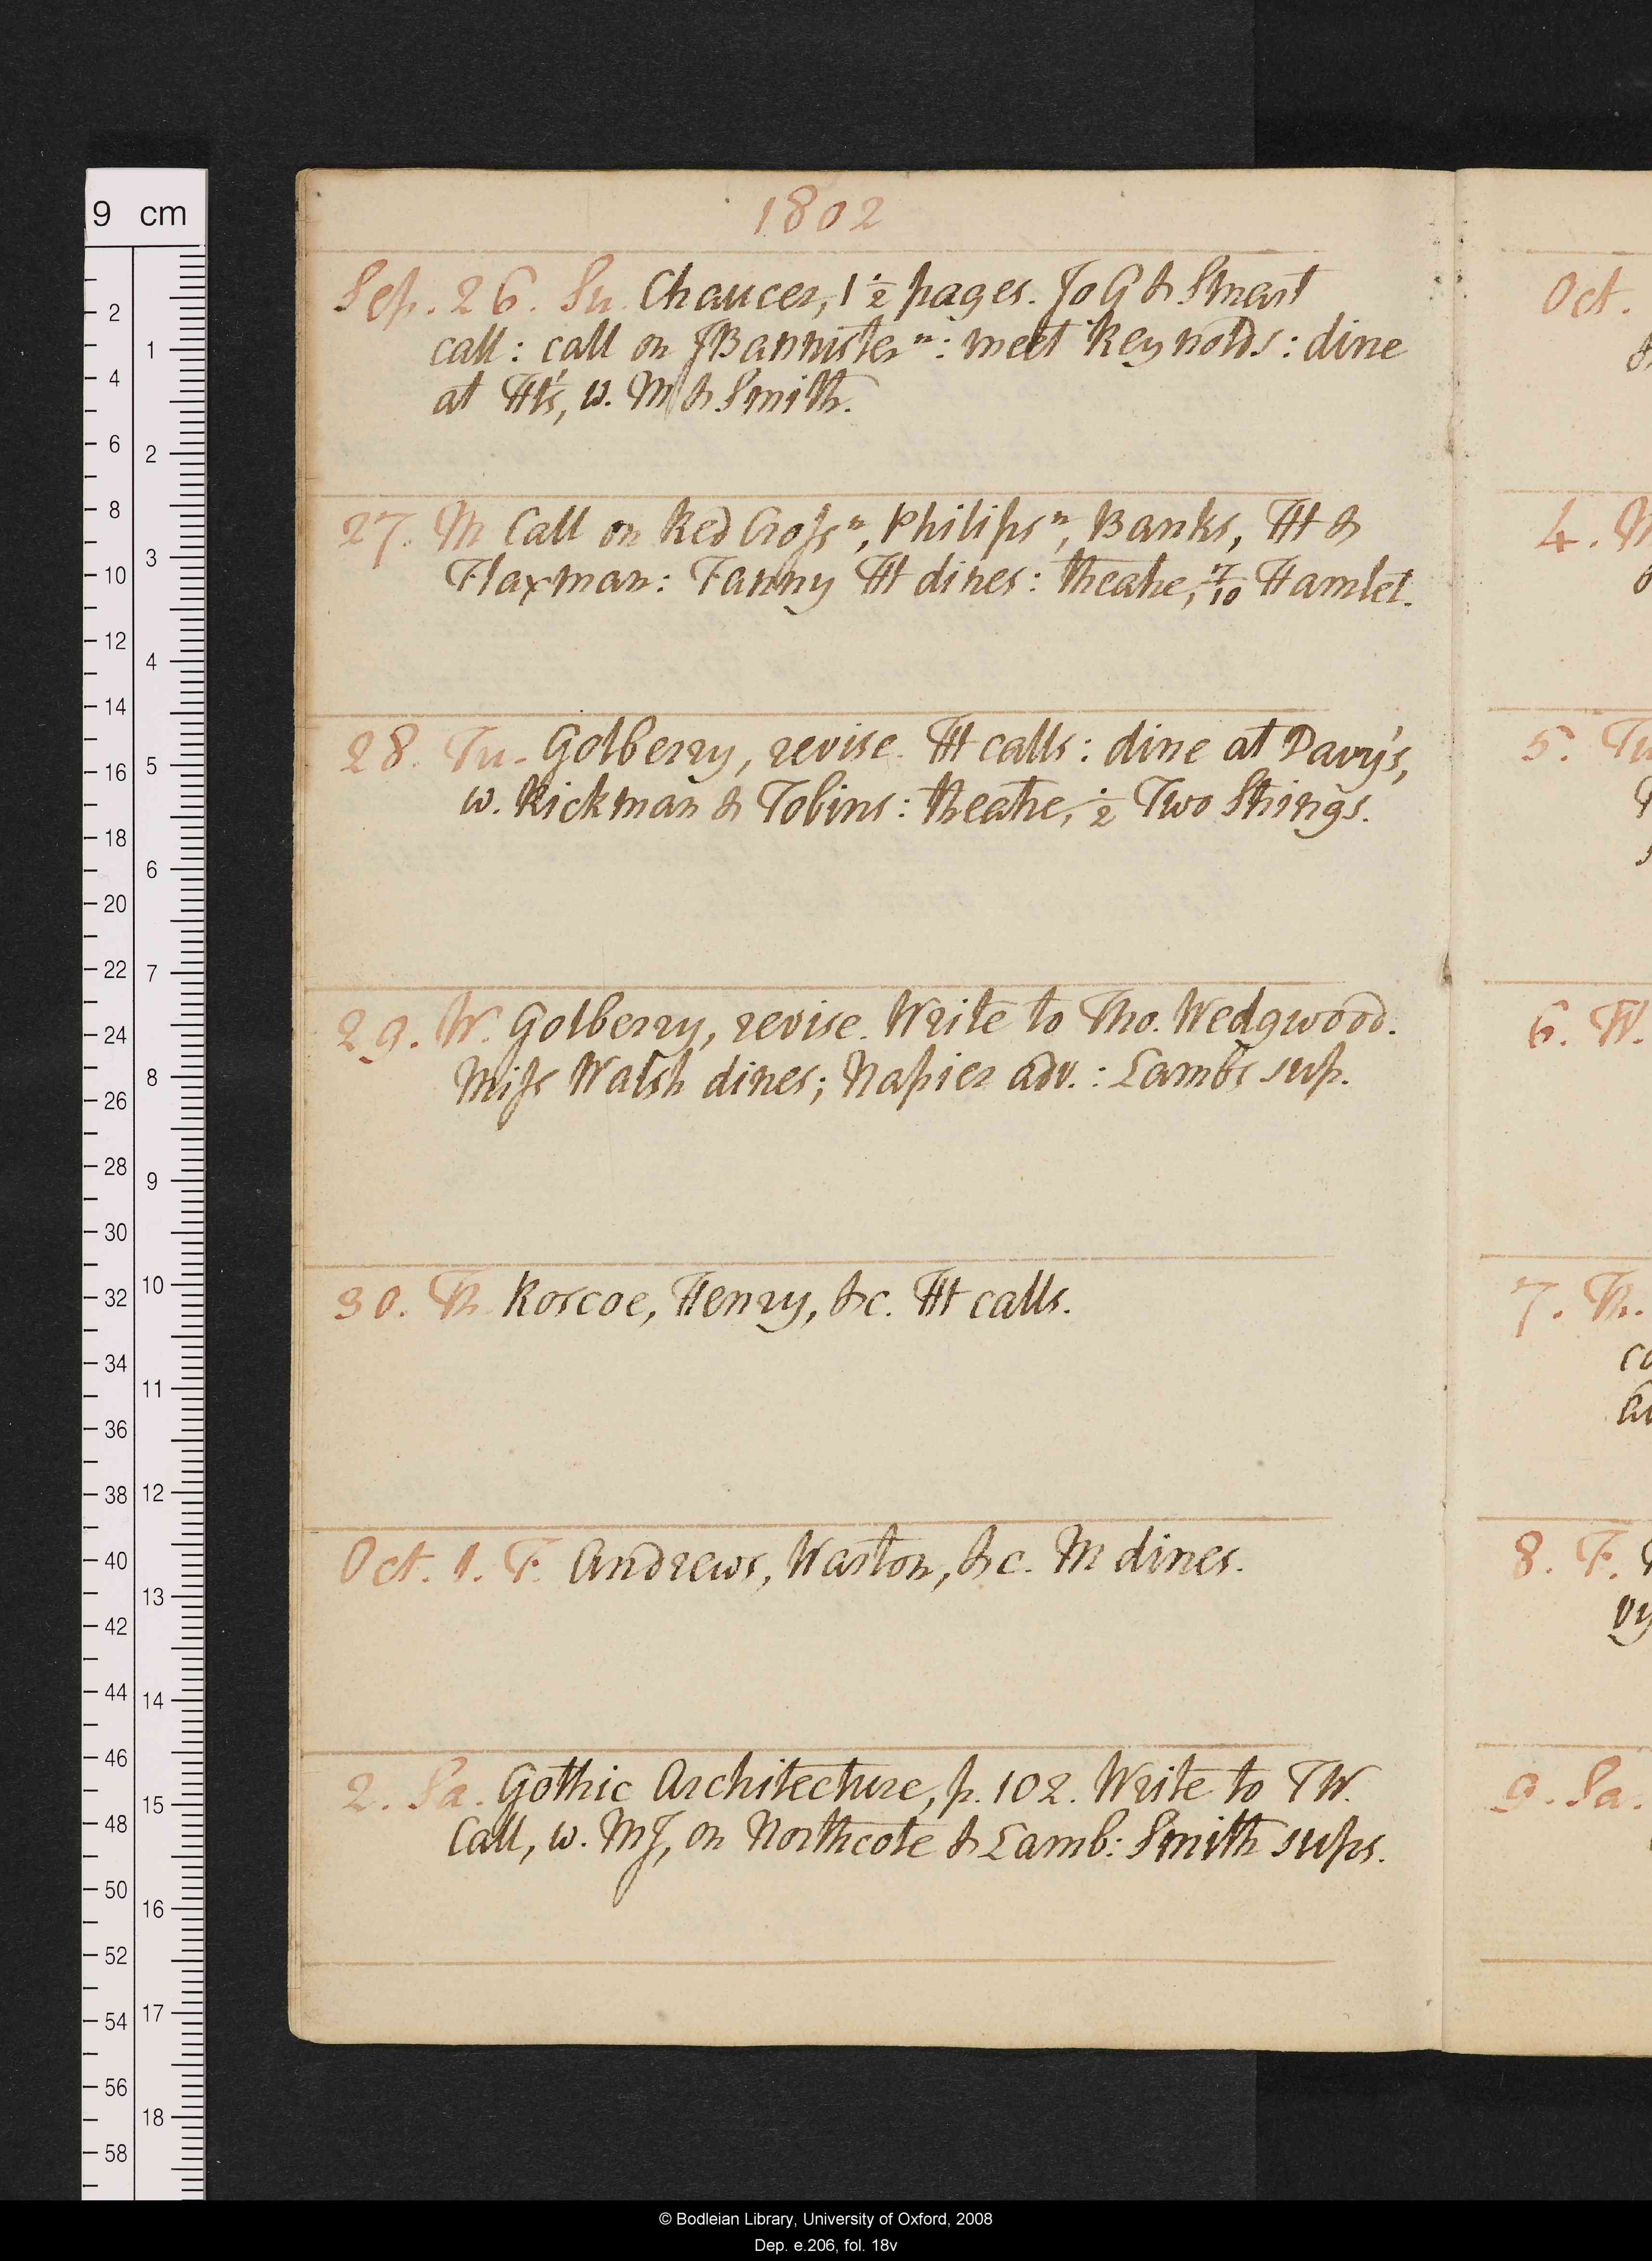 1802
Sep. 26. Su. Chaucer, 1 1/2 pages. Jo G & Smart
call: call on JBannister n: meet Reynolds: dine
at Ht's, w. M & Smith.
27. M Call on Red Cross n, Philips n, Banks, Ht &
Flaxman: Fanny Ht dines: theatre, 7/10 Hamlet.
28. Tu. Golberry, revise. Ht calls: dine at Davy's,
w. Rickman & Tobins: theatre, 1/2 Two Strings.
29. W. Golberry, revise. Write to Tho. Wedgwood.
Miss Walsh dines; Napier adv.: Lambs sup.
30. Th Roscoe, Henry, &c. Ht calls.
Oct. 1. F. Andrews, Warton, &c. M dines.
2. Sa. Gothic Architecture, p. 102. Write to TW.
Call, w. MJ, on Northcote & Lamb: Smith sups.
Oct.
4. M
5. Tu
6. W.
7. Th.
8. F.
9. Sa.
9 cm
2
4
6
8
10
12
14
16
18
20
22
24
26
28
30
32
34
36
38
40
42
44
46
48
50
52
54
56
58
1
2
3
4
5
6
7
8
9
10
11
12
13
14
15
16
17
18
© Bodleian Library, University of Oxford, 2008
Dep. e.206, fol. 18v